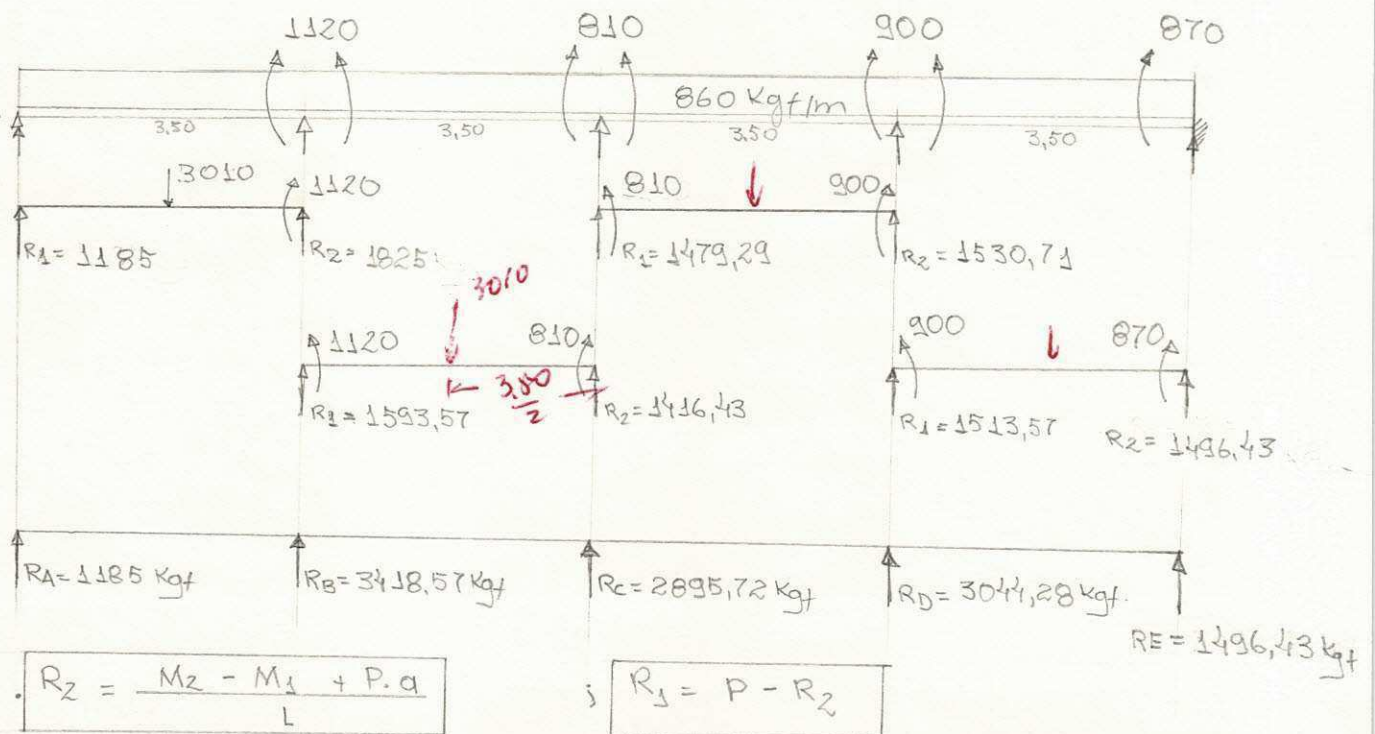 1120 810 900 870
860 Kgf/m
3,50 3,50 3,50 3,50
3010 1120 810 900
R1 = 1185 R2 = 1825 R1 = 1479,29 R2 = 1530,71
3010
1120 810 900 870
3,50
2
R1 = 1593,57 R2 = 1416,43 R1 = 1513,57 R2 = 1496,43
RA = 1185 Kgf RB = 3418,57 Kgf RC = 2895,72 Kgf RD = 3044,28 Kgf.
RE = 1496,43 Kgf
. R2 = M2 - M1 + P.a / L ; R1 = P - R2